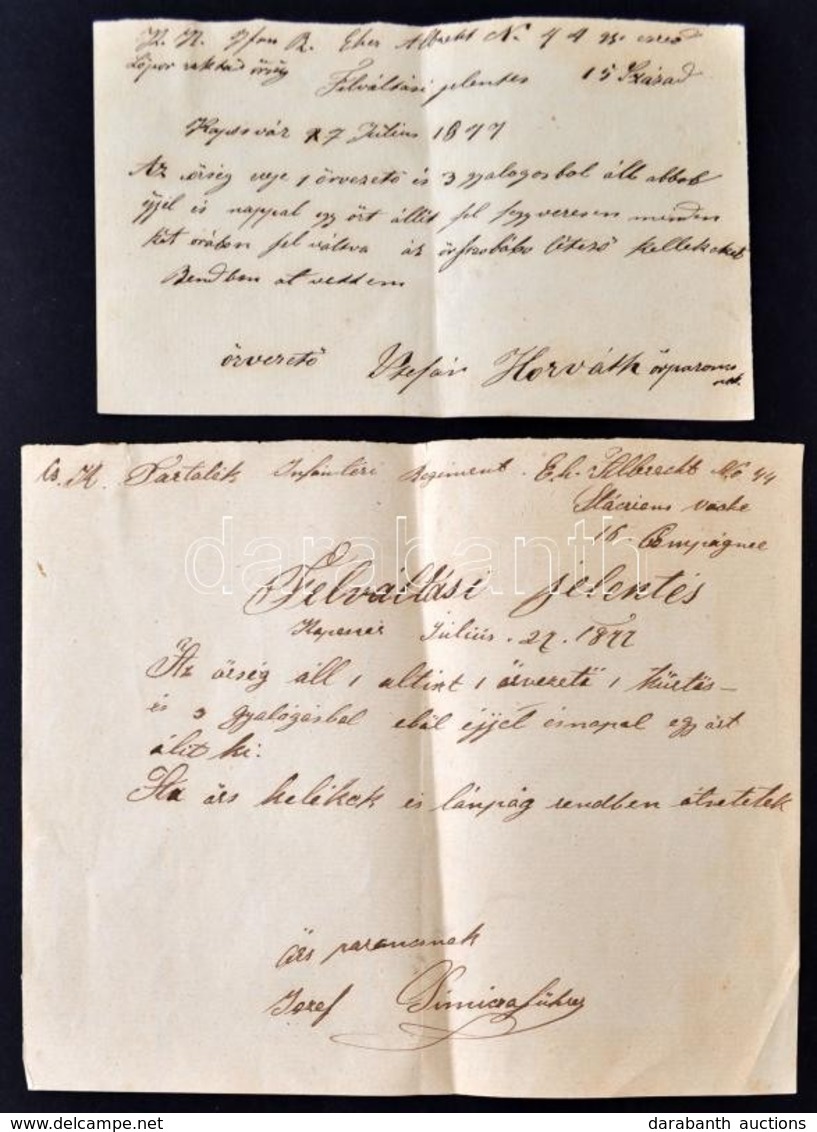 K. K. Ifan R. Eher Albrekt N. 44 ezred
Lőpor raktád őrség
Felváltási jelentes 15 Század
Kaposvár 27 Július 1877
Az őrség eje 1 örvezető és 3 gyalogosbol áll abbol
éjjel és nappal egy őrt állit fel fegyveresen minden
két órában fel váltva áz őrszobába létező kellekeket
Rendben at vettem
örvezető Stefán Horváth őrparancs
nok.
Cs. K. Tartalék Infantéri Regiment. E.h. Albrecht No 44
Stáczions vache
16 Compágnee
Felváltási jelentés
Kaposvár Július. 27. 1877
Az őrség áll 1 altiszt 1 őrvezetö 1 kürtös
és 3 gyalógásbol ebál éjjel ésnapal egy őrt
álit ki.
Az őrs kelékek es lánpág rendben átvetetek
darabanth
Örs parancsnok
Jozef führer
darabanth auctions